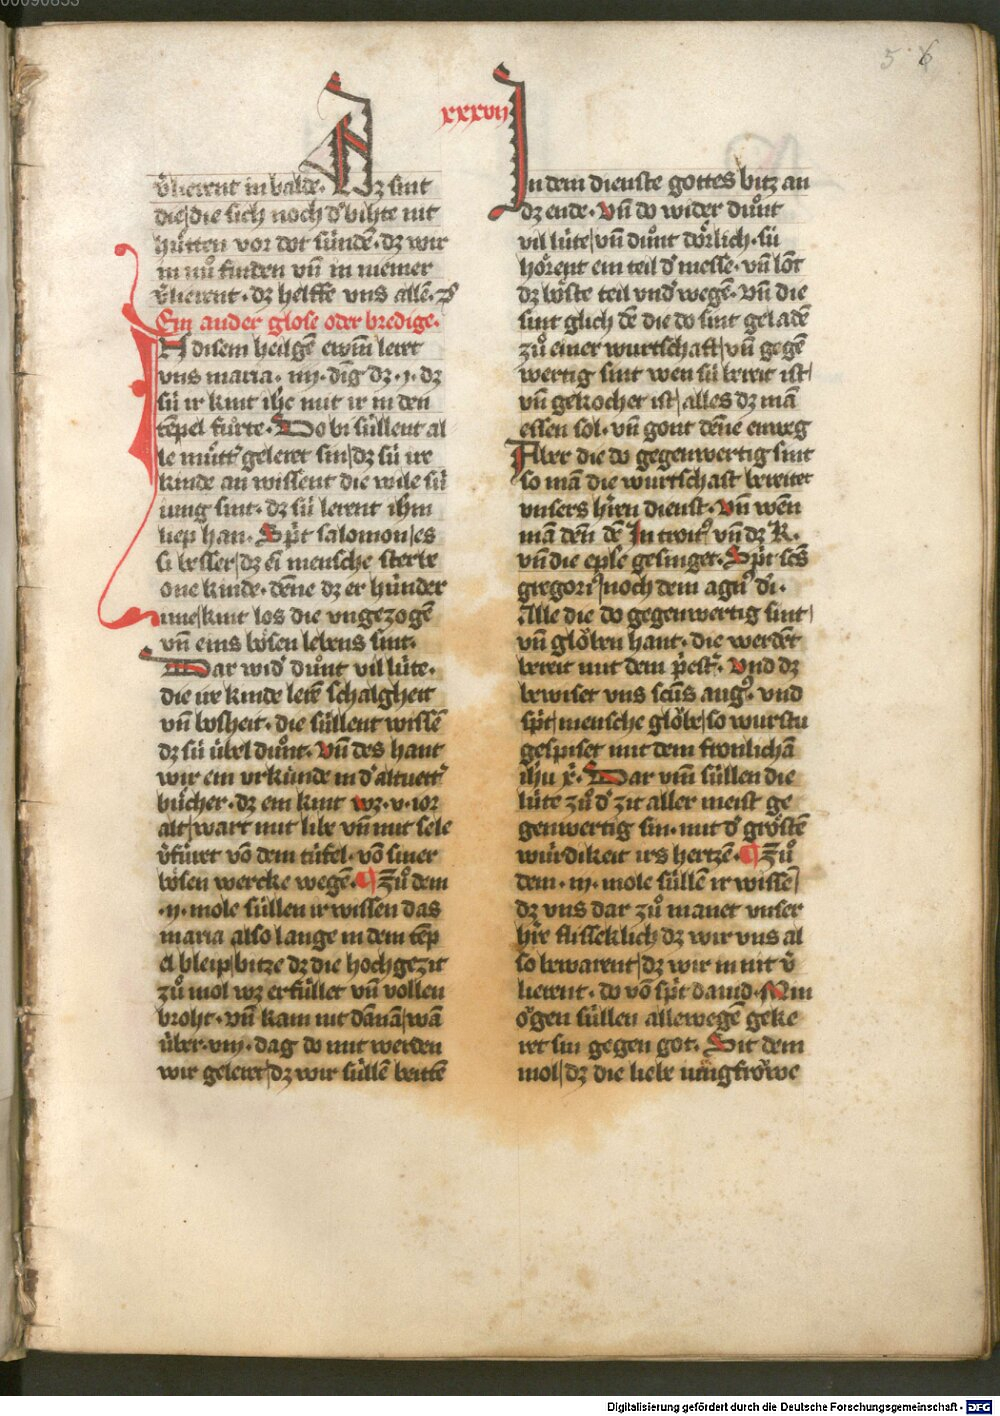 00090853
5 6
xxxvii
v̄lierent in balde. Dz sint
die|die sich noch d' bihte nit
hůtten vor dot sünden. dz wir
in nů finden vn̄ in niemer
v̄lierent. dz helffe vns allē.
Ein ander glose oder bredige.
In disem heilgē ewm̄ leret
vns maria. iiij. dīg dz .j. dz
sü ir kint ihc mit ir in den
tēpel fůrte. Do bi süllent al
le mütt' geleret sin|dz sü ire
kinde an wissent die wile sü
iung sint. dz sü lerent ihm̄
liep han. Spr̄t salomon|es
si besser|dz ei mensche sterbe
one kinde. dēne dz er hünder
ime|kint los die vngezogē
vn̄ eins bösen lebens sint.
Dar wid' důnt vil lüte.
die ire kinde lerē schalgheit
vn̄ bosheit. die süllent wissē
dz sü übel důnt. Vn̄ des hant
wir ein vrkünde in d' altuett'
bücher. dz ein kint wz .v. ior
alt|wart mit libe vn̄ mit sele
v̄fürt vō dem tüfel. vō siner
bösen wercke wegē. Zů dem
.ij. mole süllen ir wissen das
maria also lange in dem tēp
el bleip|bitze dz die hochgezit
zů mol wz erfüllet vn̄ vollen
broht. vn̄ kam nit dānā|wā
über .viij. dag do mit werden
wir geleret|dz wir süllē beitē
In dem dienste gottes bitz an
dz ende. Vn̄ do wider důnt
vil lüte|vn̄ důnt dörlich. sü
hörent ein teil d' messe. vn̄ lōt
dz böste teil vnd'wegē. Vn̄ die
sint glich dē die do sint geladē
zů einer wurtschaft|vn̄ gegē
wertig sint wen sü bereit ist|
vn̄ gekochet ist|alles dz mā
essen sol. vn̄ gont dēne enweg
Aber die do gegenwertig sint
so mā die wurtschaft bereitet
vnsers hr̄en dienst. Vn̄ wēn
mā dēn dē Introit' vn̄ dz K.
vn̄ die eple gesinget. Spr̄t scs̄
gregori'|noch dem agn' di.
Alle die do gegenwertig sint|
vn̄ glöben hant. die werdēt
bereit mit dem p̄est'. Vnd dz
bewiset vns scūs aug'. vnd
spr̄t|mensche glöbe|so wurstu
gespiset mit dem fronlichā
ihu x̄. Dar vm̄ süllen die
lüte zů d' zit aller meist ge
genwertig sin. mit d' gröstē
würdikeit irs hertzē. Zů
dem .iij. mole süllē ir wissē|
dz vns dar zů manet vnser
hr̄e flisseklich dz wir vns al
so bewarent|dz wir in nit v̄
lierent. do vō spr̄t dauid. Min
ögen süllen allewegē geke
ret sin gegen got. Sit dem
mol|dz die liebe iungfröwe
Digitalisierung gefördert durch die Deutsche Forschungsgemeinschaft - DFG